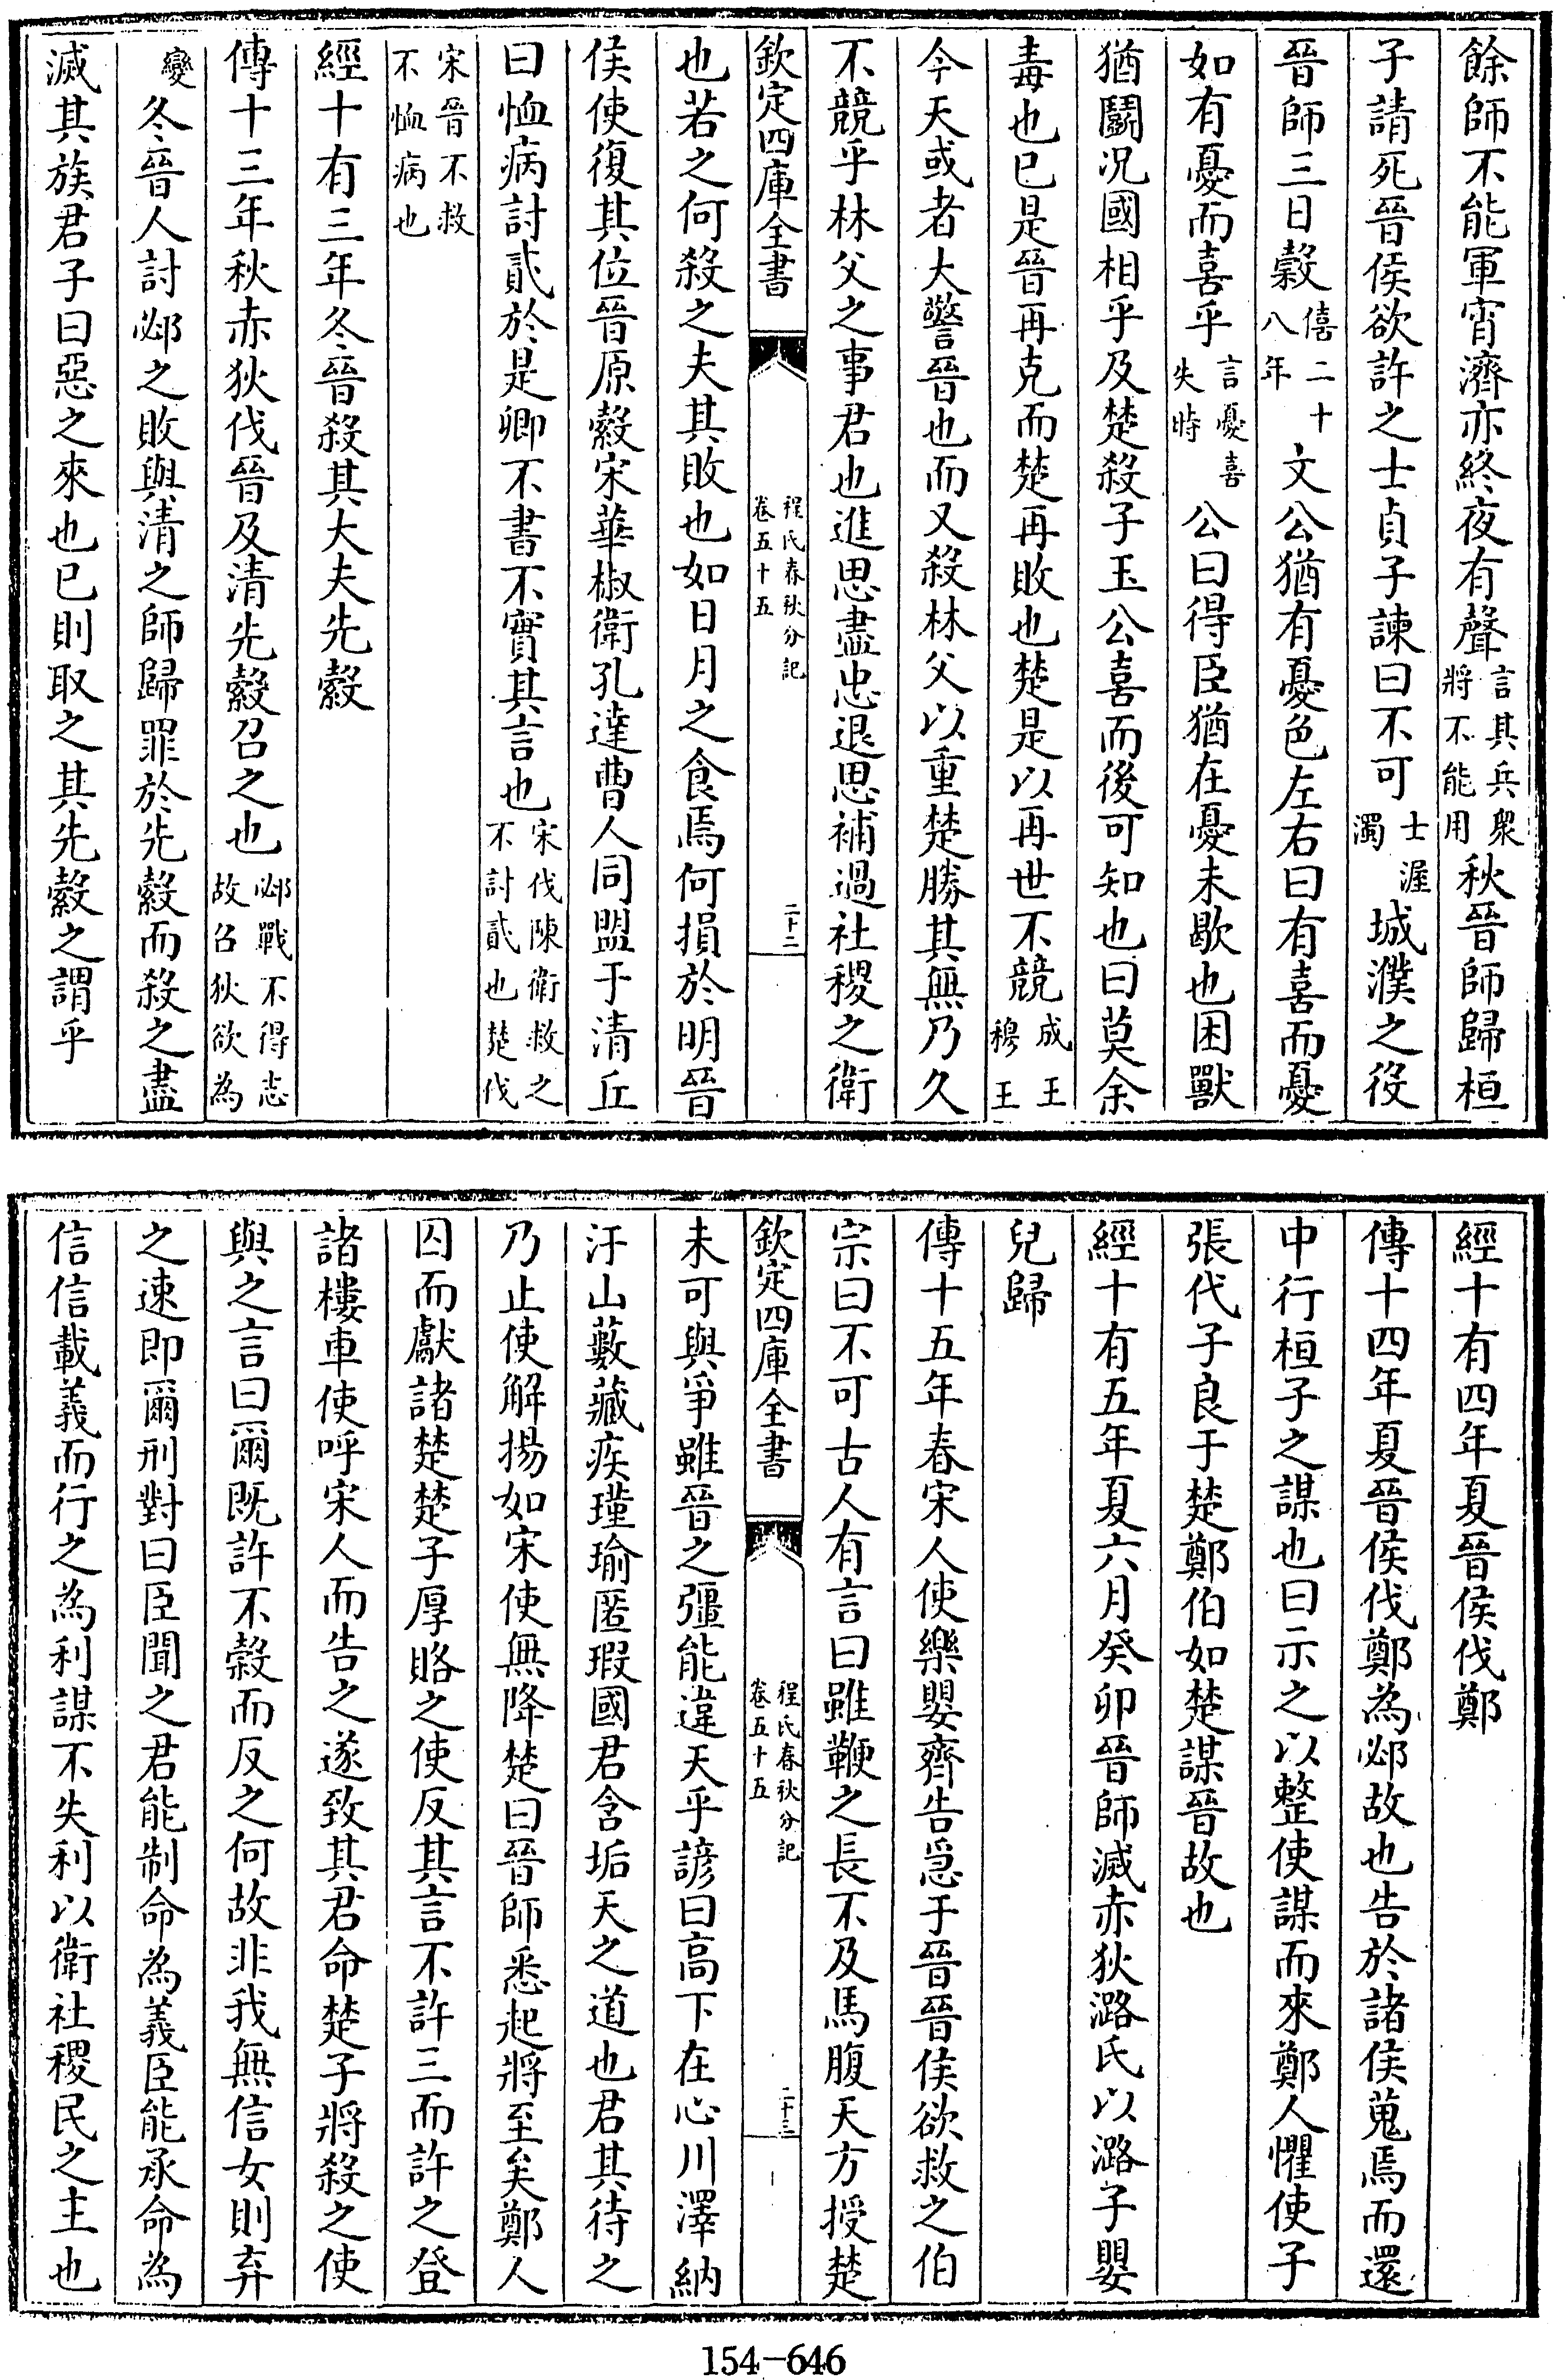 餘師不能軍宵濟亦終夜有聲言其兵衆將不能用秋晉師歸桓
子請死晉侯欲許之士貞子諫曰不可士渥濁城濮之役
晉師三日穀僖二十八年文公猶有憂色左右曰有喜而憂
如有憂而喜乎言憂喜失時公曰得臣猶在憂未歇也困獸
猶鬭況國相乎及楚殺子玉公喜而後可知也曰莫余
毒也已是晉再克而楚再敗也楚是以再世不競成王穆王
今天或者大警晉也而又殺林父以重楚勝其無乃久
不競乎林父之事君也進思盡忠退思補過社稷之衛
欽定四庫全書 程氏春秋分記卷五十五 二十二
也若之何殺之夫其敗也如日月之食焉何損於明晉
侯使復其位晉原縠宋華椒衛孔達曹人同盟于清丘
曰恤病討貳於是卿不書不實其言也宋伐陳衛救之不討貳也楚伐
宋晉不救不恤病也
經十有三年冬晉殺其大夫先縠
傳十三年秋赤狄伐晉及清先縠召之也邲戰不得志故召狄欲為
變冬晉人討邲之敗與清之師歸罪於先縠而殺之盡
滅其族君子曰惡之來也已則取之其先縠之謂乎
經十有四年夏晉侯伐鄭
傳十四年夏晉侯伐鄭為邲故也告於諸侯蒐焉而還
中行桓子之謀也曰示之以整使謀而來鄭人懼使子
張代子良于楚鄭伯如楚謀晉故也
經十有五年夏六月癸卯晉師滅赤狄潞氏以潞子嬰
兒歸
傳十五年春宋人使樂嬰齊告急于晉晉侯欲救之伯
宗曰不可古人有言曰雖鞭之長不及馬腹天方授楚
欽定四庫全書 程氏春秋分記卷五十五 二十三
未可與爭雖晉之彊能違天乎諺曰高下在心川澤納
汙山藪藏疾瑾瑜匿瑕國君含垢天之道也君其待之
乃止使解揚如宋使無降楚曰晉師悉起將至矣鄭人
囚而獻諸楚楚子厚賂之使反其言不許三而許之登
諸樓車使呼宋人而告之遂致其君命楚子將殺之使
與之言曰爾既許不穀而反之何故非我無信女則弃
之速即爾刑對曰臣聞之君能制命為義臣能承命為
信信載義而行之為利謀不失利以衛社稷民之主也
154-646